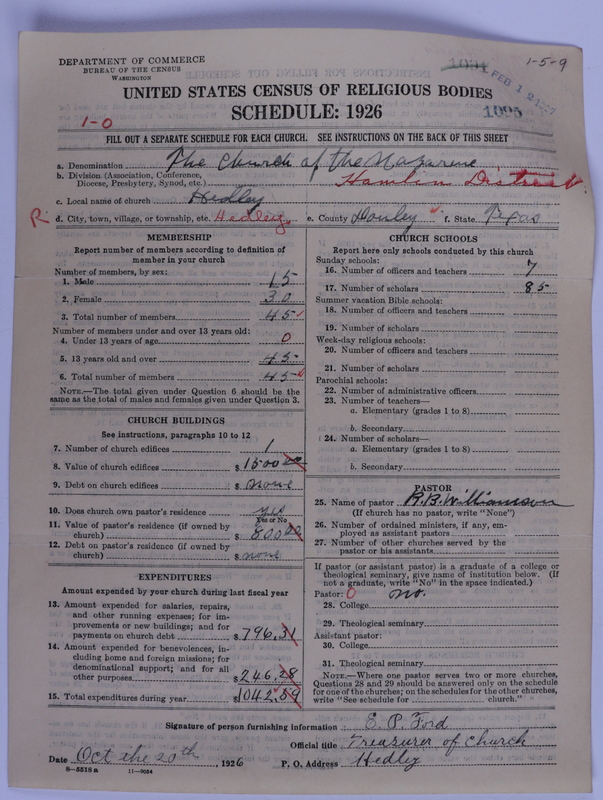 DEPARTMENT OF COMMERCE
BUREAU OF THE CENSUS
WASHINGTON
1-5-9
1094
FEB 1 2 1927
UNITED STATES CENSUS OF RELIGIOUS BODIES
SCHEDULE: 1926
1095
1-0
FILL OUT A SEPARATE SCHEDULE FOR EACH CHURCH. SEE INSTRUCTIONS ON THE BACK OF THIS SHEET
a. Denomination The Church of the Nazarene
b. Division (Association, Conference, Diocese, Presbytery, Synod, etc.) Hamlin District
c. Local name of church Hedley
R. d. City, town, village, or township, etc. Hedley e. County Donley f. State Texas
MEMBERSHIP
Report number of members according to definition of
member in your church
Number of members, by sex:
1. Male 15
2. Female 30
3. Total number of members 45
Number of members under and over 13 years old:
4. Under 13 years of age 0
5. 13 years old and over 45
6. Total number of members 45
NOTE.—The total given under Question 6 should be
same as the total of males and females given under Question 3.
CHURCH BUILDINGS
See instructions, paragraphs 10 to 12
7. Number of church edifices 1
8. Value of church edifices $ 1500 00
9. Debt on church edifices $ none
10. Does church own pastor's residence yes
Yes or No
11. Value of pastor's residence (if owned by
church) $ 800 00
12. Debt on pastor's residence (if owned by
church) $ none
EXPENDITURES
Amount expended by your church during last fiscal year
13. Amount expended for salaries, repairs,
and other running expenses; for im-
provements or new buildings; and for
payments on church debt $ 796.31
14. Amount expended for benevolences, in-
cluding home and foreign missions; for
denominational support; and for all
other purposes $ 246.28
15. Total expenditures during year $ 1042.59
CHURCH SCHOOLS
Report here only schools conducted by this church
Sunday schools:
16. Number of officers and teachers 7
17. Number of scholars 85
Summer vacation Bible schools:
18. Number of officers and teachers
19. Number of scholars
Week-day religious schools:
20. Number of officers and teachers
21. Number of scholars
Parochial schools:
22. Number of administrative officers
23. Number of teachers—
a. Elementary (grades 1 to 8)
b. Secondary
24. Number of scholars—
a. Elementary (grades 1 to 8)
b. Secondary
PASTOR
25. Name of pastor R. B. Williamson
(If church has no pastor, write "None")
26. Number of ordained ministers, if any, em-
ployed as assistant pastors
27. Number of other churches served by the
pastor or his assistants
If pastor (or assistant pastor) is a graduate of a college or
theological seminary, give name of institution below. (If
not a graduate, write "No" in the space indicated.)
Pastor: 0 no.
28. College
29. Theological seminary
Assistant pastor:
30. College
31. Theological seminary
NOTE.—Where one pastor serves two or more churches,
Questions 28 and 29 should be answered only on the schedule
for one of the churches; on the schedules for the other churches,
write "See schedule for church."
Signature of person furnishing information E. P. Ford
Official title Treasurer of Church
Date Oct the 20th, 1926 P. O. Address Hedley
8—5518 a 11—9064